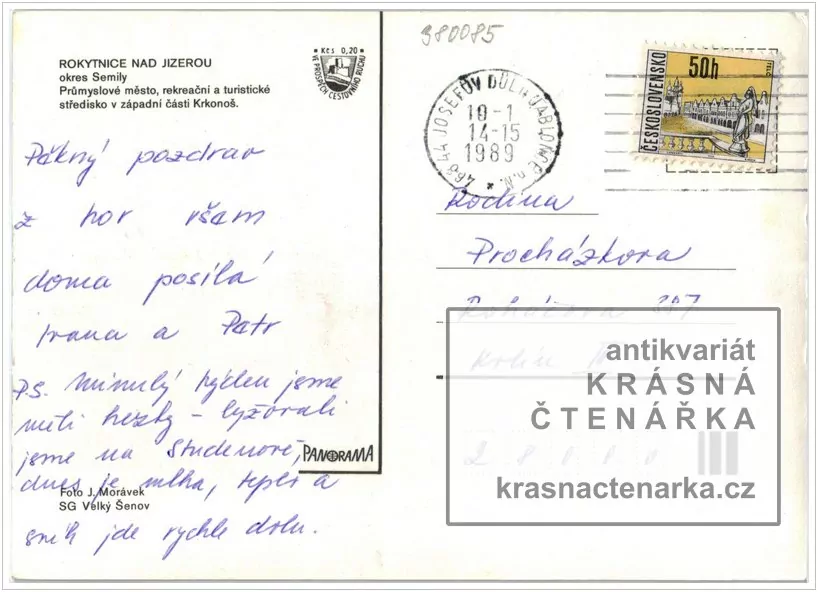 380085
ROKYTNICE NAD JIZEROU
okres Semily
Průmyslové město, rekreační a turistické
středisko v západní části Krkonoš.
Kčs 0,20
VE PROSPĚCH CESTOVNÍHO RUCHU
468 44 JOSEFŮV DŮL U JABLONCE n. N.
10-1
14-15
1989
ČESKOSLOVENSKO
50h
TELČ
Pěkný pozdrav
z hor všem
doma posílá
Ivana a Petr
P.S. Minulý týden jsme
měli hezky – lyžovali
jsme na Studenově,
dnes je mlha, teplo a
sníh jde rychle dolu.
PANORAMA
Foto J. Morávek
SG Velký Šenov
Rodina
Procházkova
Roháčova 387
Kolín
28000
antikvariát
KRÁSNÁ
ČTENÁŘKA
krasnactenarka.cz